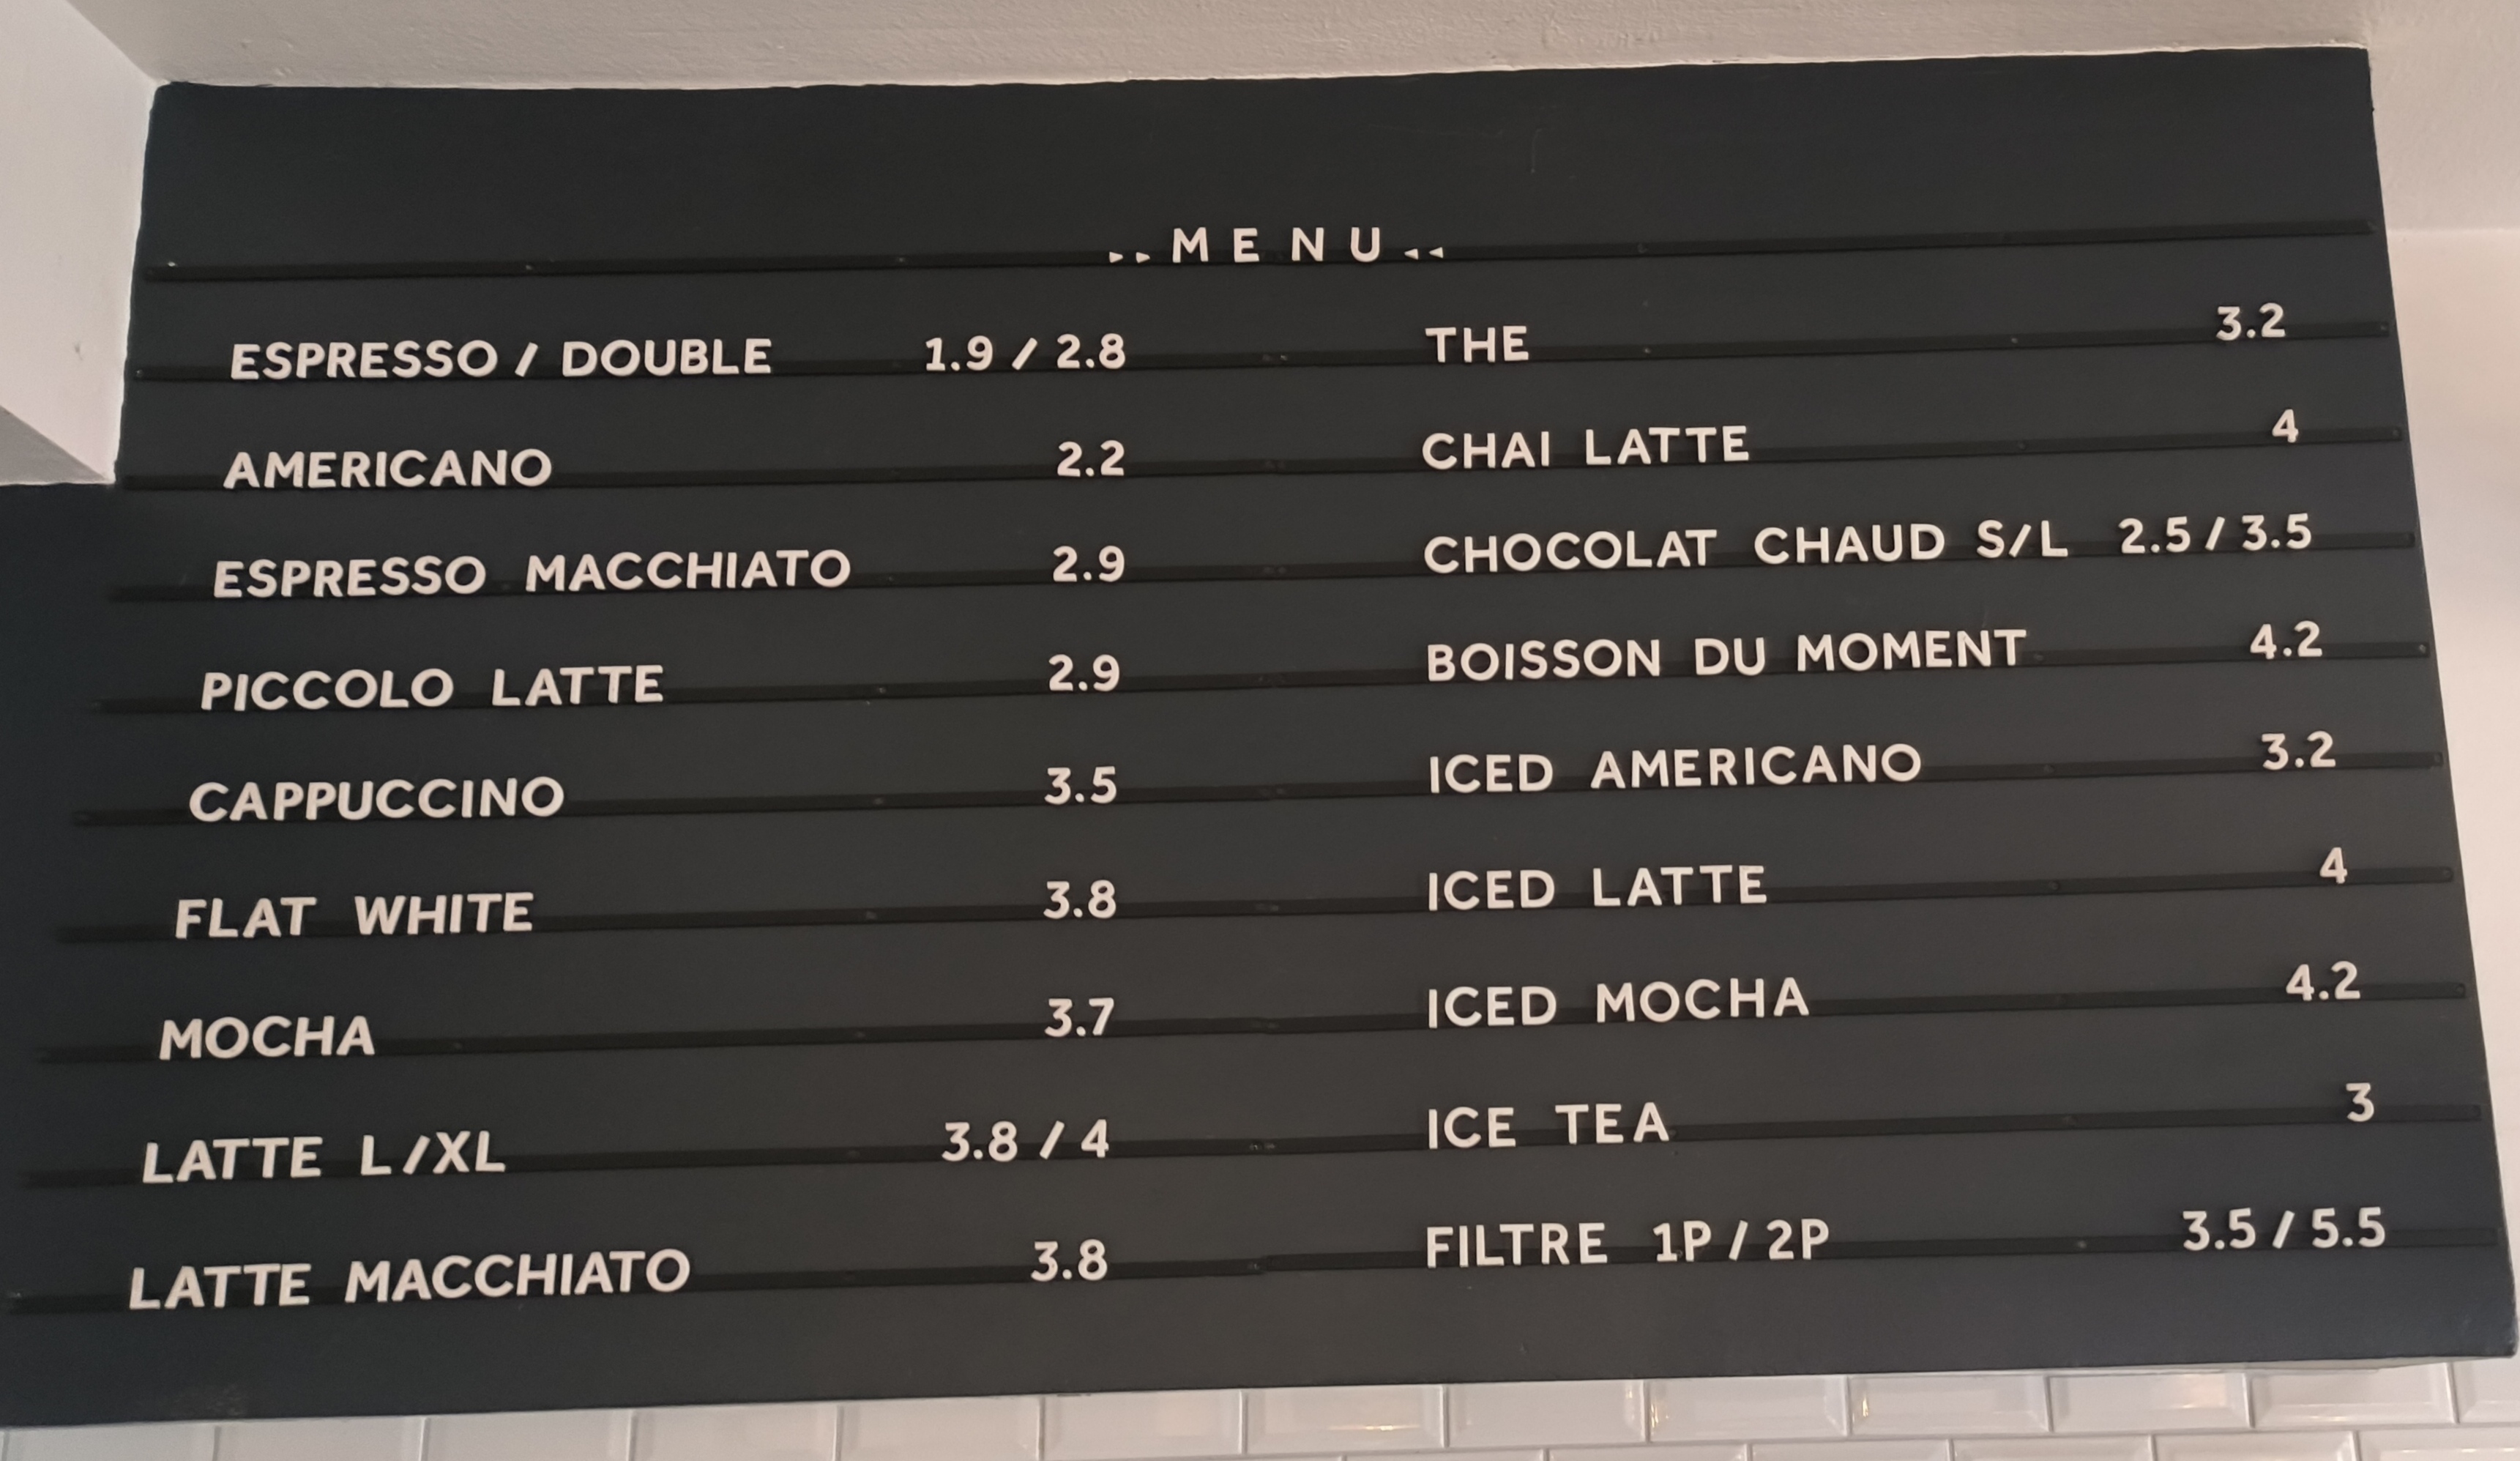 ▸▸ MENU ◂◂
ESPRESSO / DOUBLE 1.9 / 2.8
AMERICANO 2.2
ESPRESSO MACCHIATO 2.9
PICCOLO LATTE 2.9
CAPPUCCINO 3.5
FLAT WHITE 3.8
MOCHA 3.7
LATTE L/XL 3.8 / 4
LATTE MACCHIATO 3.8
THE 3.2
CHAI LATTE 4
CHOCOLAT CHAUD S/L 2.5 / 3.5
BOISSON DU MOMENT 4.2
ICED AMERICANO 3.2
ICED LATTE 4
ICED MOCHA 4.2
ICE TEA 3
FILTRE 1P / 2P 3.5 / 5.5